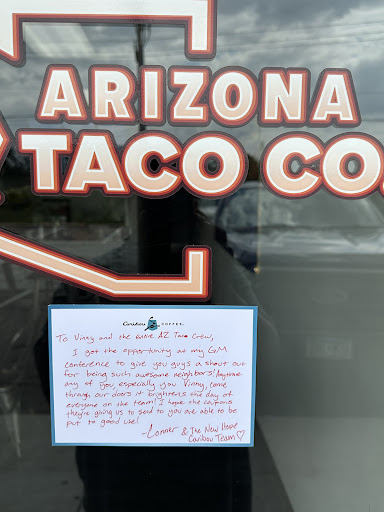 ARIZONA
TACO CO.
Caribou COFFEE.
To Vinny and the entire AZ Taco Crew,
I got the opportunity at my GM
conference to give you guys a shout out
for being such awesome neighbors! Anytime
any of you, especially you Vinny, come
through our doors it brightens the day of
everyone on the team! I hope the coupons
they're giving us to send to you are able to be
put to good use!
-Conner & The New Hope
Caribou Team ♡